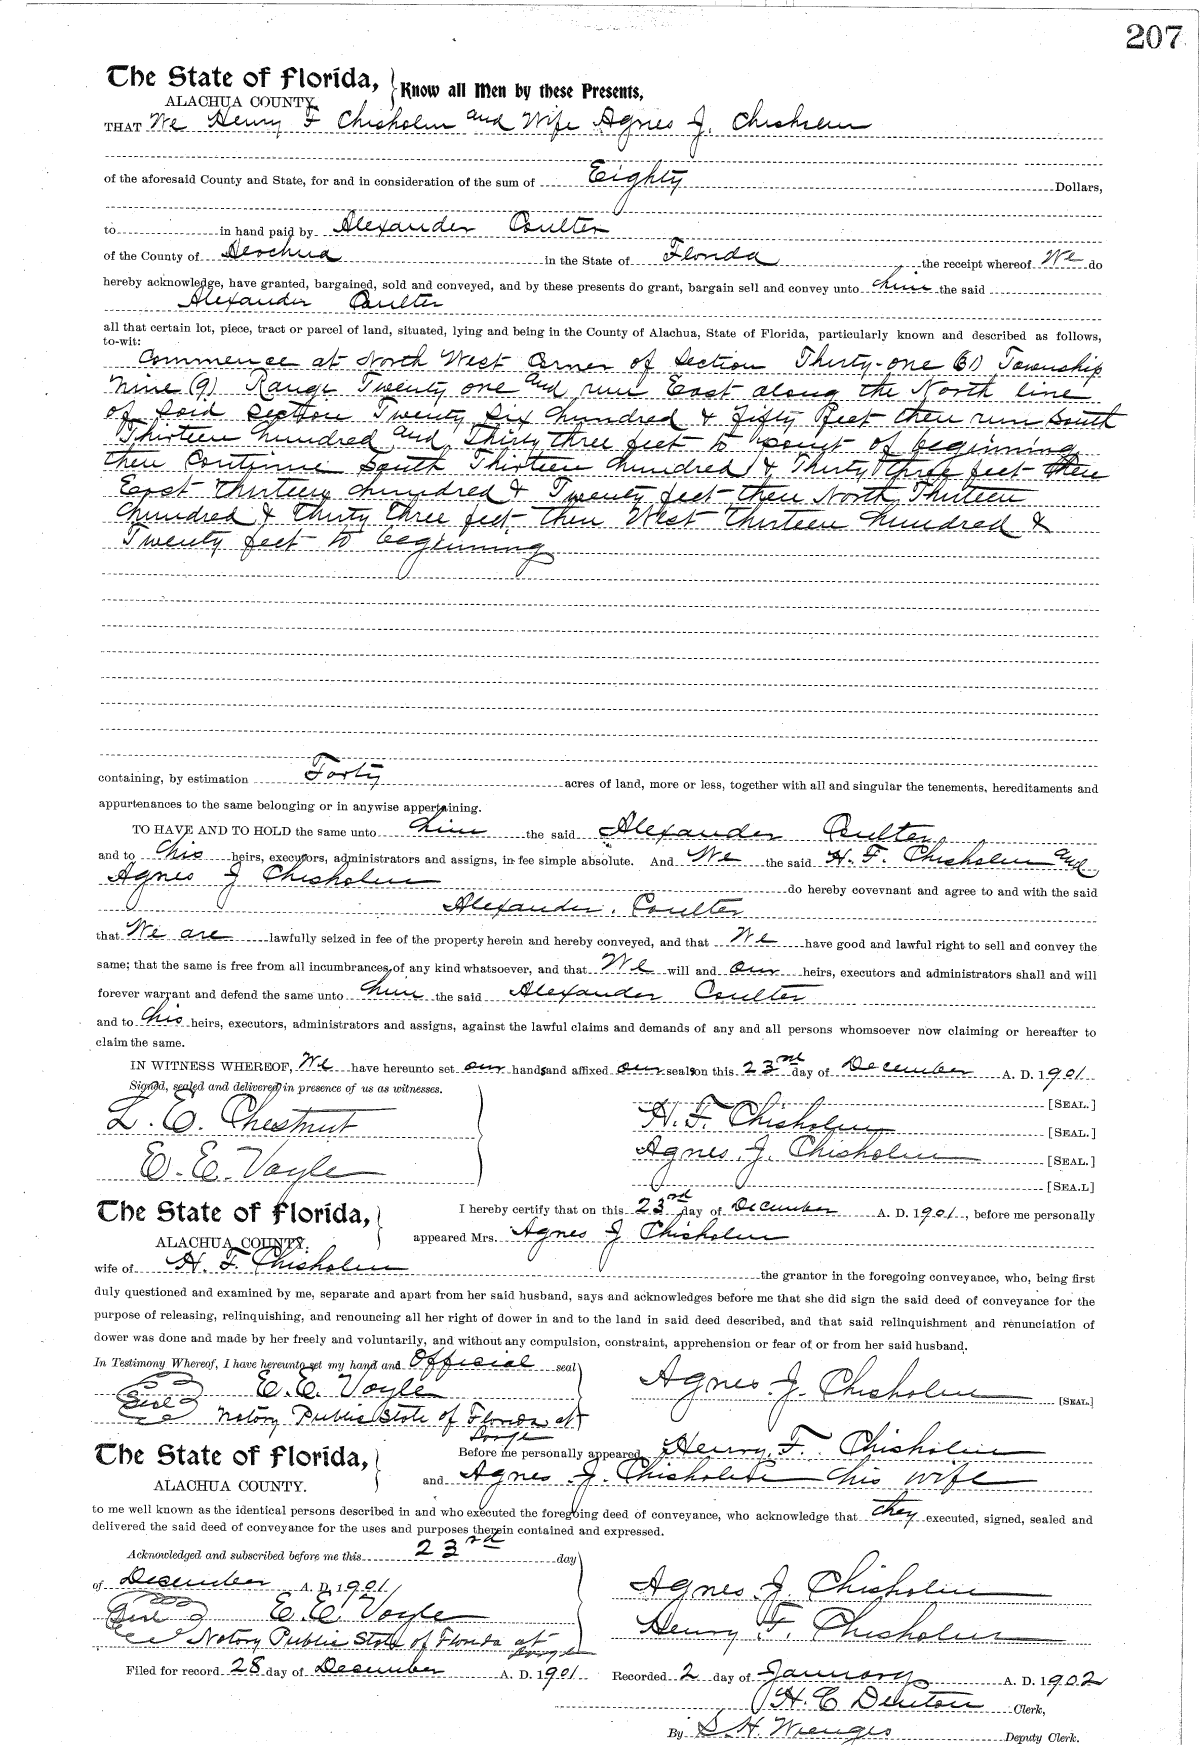 207
The State of Florida, Know all Men by these Presents,
ALACHUA COUNTY.
THAT We Henry F Chisholm and Wife Agnes J. Chisholm
of the aforesaid County and State, for and in consideration of the sum of Eighty Dollars,
to in hand paid by Alexander Coulter
of the County of Alachua in the State of Florida the receipt whereof We do
hereby acknowledge, have granted, bargained, sold and conveyed, and by these presents do grant, bargain sell and convey unto him the said
Alexander Coulter
all that certain lot, piece, tract or parcel of land, situated, lying and being in the County of Alachua, State of Florida, particularly known and described as follows,
to-wit:
Commence at North West Corner of Section Thirty-one (31) Township
Nine (9) Range Twenty one and run East along the North line
of said section Twenty six hundred & fifty feet then run South
Thirteen hundred and Thirty three feet to point of beginning
then Continue South Thirteen hundred & Thirty three feet then
East thirteen hundred & Twenty feet then North Thirteen
hundred & thirty three feet then West thirteen hundred &
Twenty feet to beginning
containing, by estimation Forty acres of land, more or less, together with all and singular the tenements, hereditaments and
appurtenances to the same belonging or in anywise appertaining.
TO HAVE AND TO HOLD the same unto him the said Alexander Coulter
and to his heirs, executors, administrators and assigns, in fee simple absolute. And We the said H. F. Chisholm and
Agnes J Chisholm do hereby covevnant and agree to and with the said
Alexander Coulter
that We are lawfully seized in fee of the property herein and hereby conveyed, and that We have good and lawful right to sell and convey the
same; that the same is free from all incumbrances of any kind whatsoever, and that We will and our heirs, executors and administrators shall and will
forever warrant and defend the same unto him the said Alexander Coulter
and to his heirs, executors, administrators and assigns, against the lawful claims and demands of any and all persons whomsoever now claiming or hereafter to
claim the same.
IN WITNESS WHEREOF, We have hereunto set our hands and affixed our seals on this 23rd day of December A. D. 1901
Signed, sealed and delivered in presence of us as witnesses.
[SEAL.]
L. C. Chestnut H. F. Chisholm [SEAL.]
E. E. Voyle Agnes J. Chisholm [SEAL.]
[SEA.L]
The State of Florida, I hereby certify that on this 23rd day of December A. D. 1901, before me personally
ALACHUA COUNTY. appeared Mrs. Agnes J Chisholm
wife of H. F. Chisholm the grantor in the foregoing conveyance, who, being first
duly questioned and examined by me, separate and apart from her said husband, says and acknowledges before me that she did sign the said deed of conveyance for the
purpose of releasing, relinquishing, and renouncing all her right of dower in and to the land in said deed described, and that said relinquishment and renunciation of
dower was done and made by her freely and voluntarily, and without any compulsion, constraint, apprehension or fear of or from her said husband.
In Testimony Whereof, I have hereunto set my hand and Official seal
Seal E. E. Voyle Agnes J. Chisholm [SEAL.]
Notary Public State of Florida at
Large
The State of Florida, Before me personally appeared Henry F. Chisholm
ALACHUA COUNTY. and Agnes J. Chisholm his wife
to me well known as the identical persons described in and who executed the foregoing deed of conveyance, who acknowledge that they executed, signed, sealed and
delivered the said deed of conveyance for the uses and purposes therein contained and expressed.
Acknowledged and subscribed before me this 23rd day
of December A. D. 1901 Agnes J. Chisholm
Seal E. E. Voyle Henry F. Chisholm
Notary Public State of Florida at
Large
Filed for record 28 day of December A. D. 1901 Recorded 2 day of January A. D. 1902
H. C. Denton Clerk,
By S. H. Wienges Deputy Clerk.